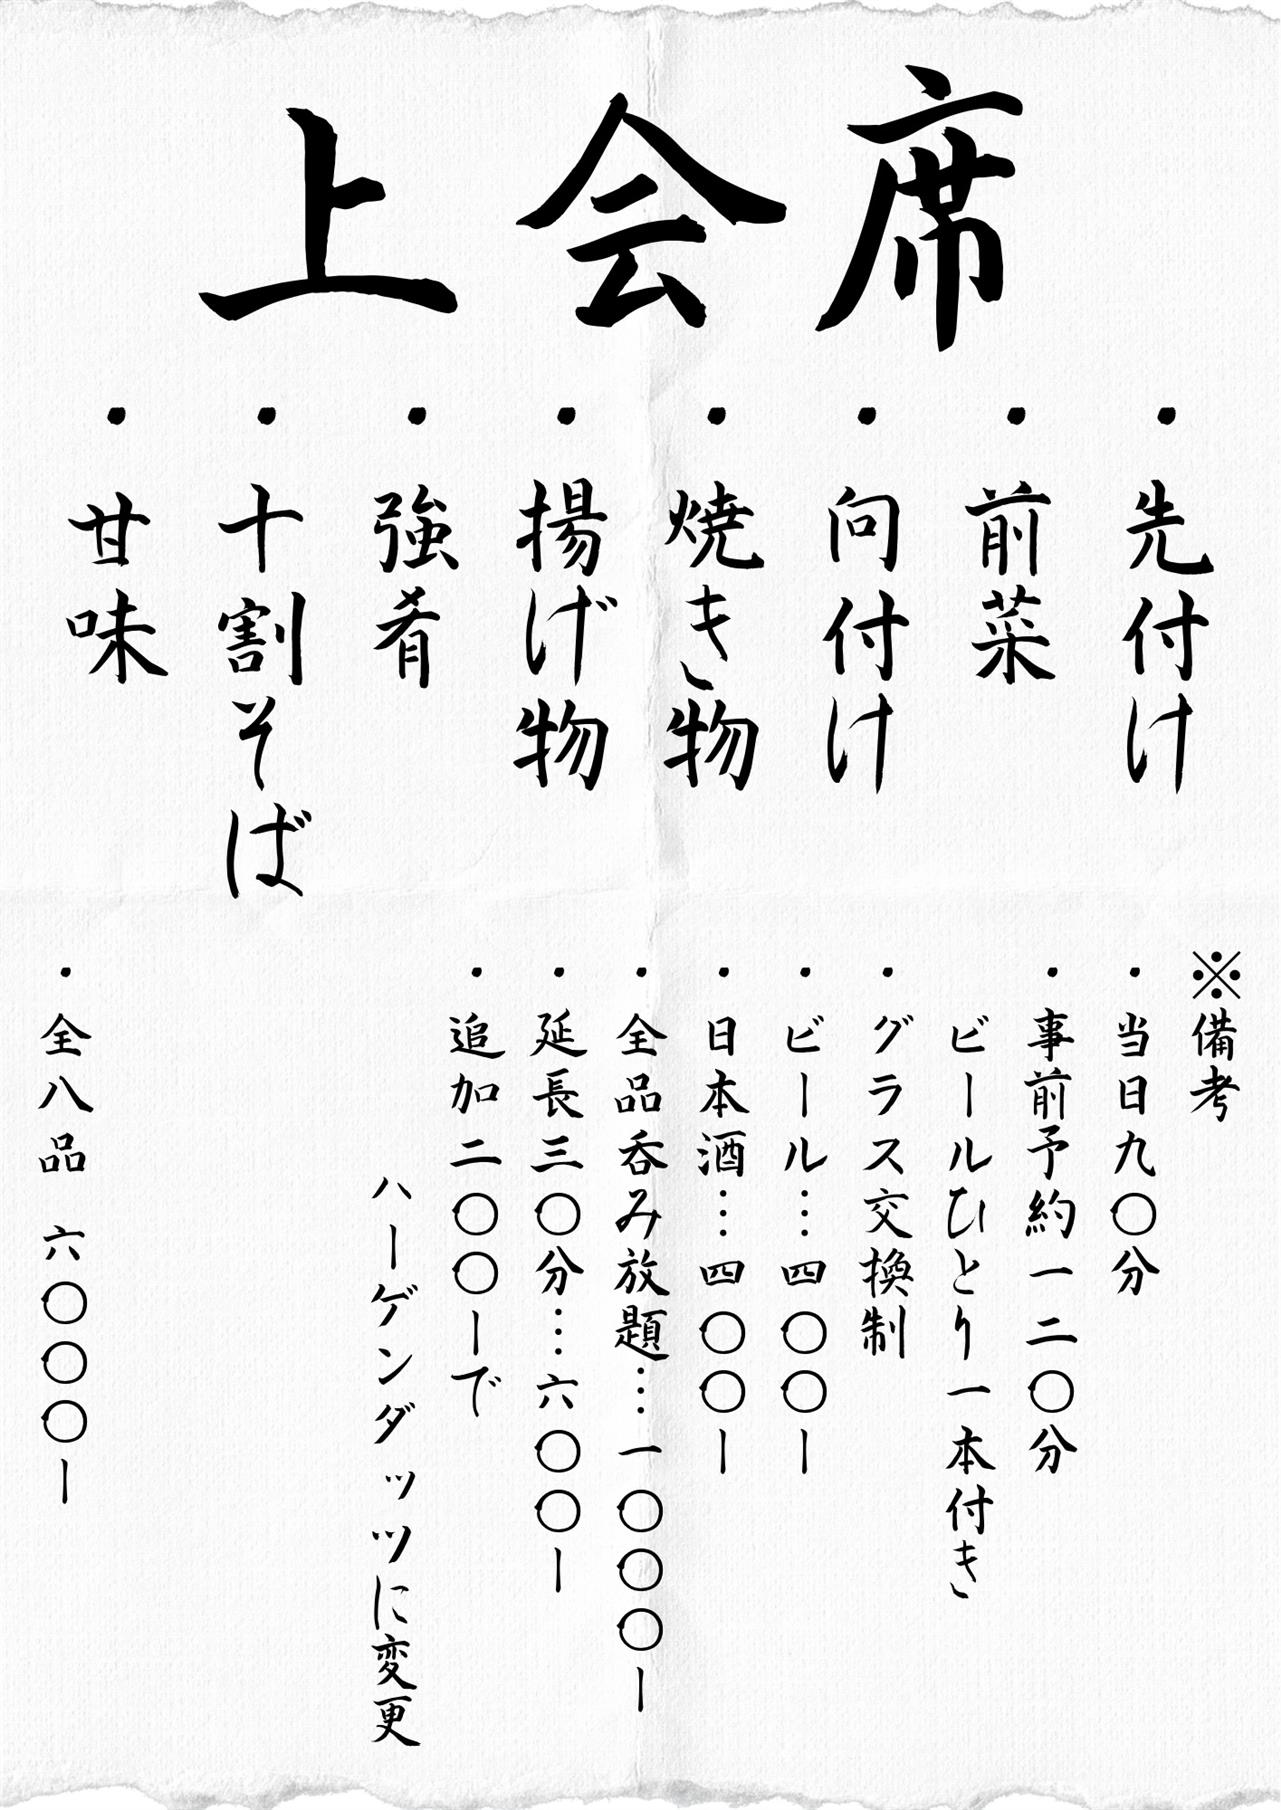 上会席
・先付け
・前菜
・向付け
・焼き物
・揚げ物
・強肴
・十割そば
・甘味
※備考
・当日九〇分
・事前予約一二〇分
ビールひとり一本付き
・グラス交換制
・ビール…四〇〇ー
・日本酒…四〇〇ー
・全品呑み放題…一〇〇〇ー
・延長三〇分…六〇〇ー
・追加二〇〇ーで
ハーゲンダッツに変更
・全八品 六〇〇〇ー